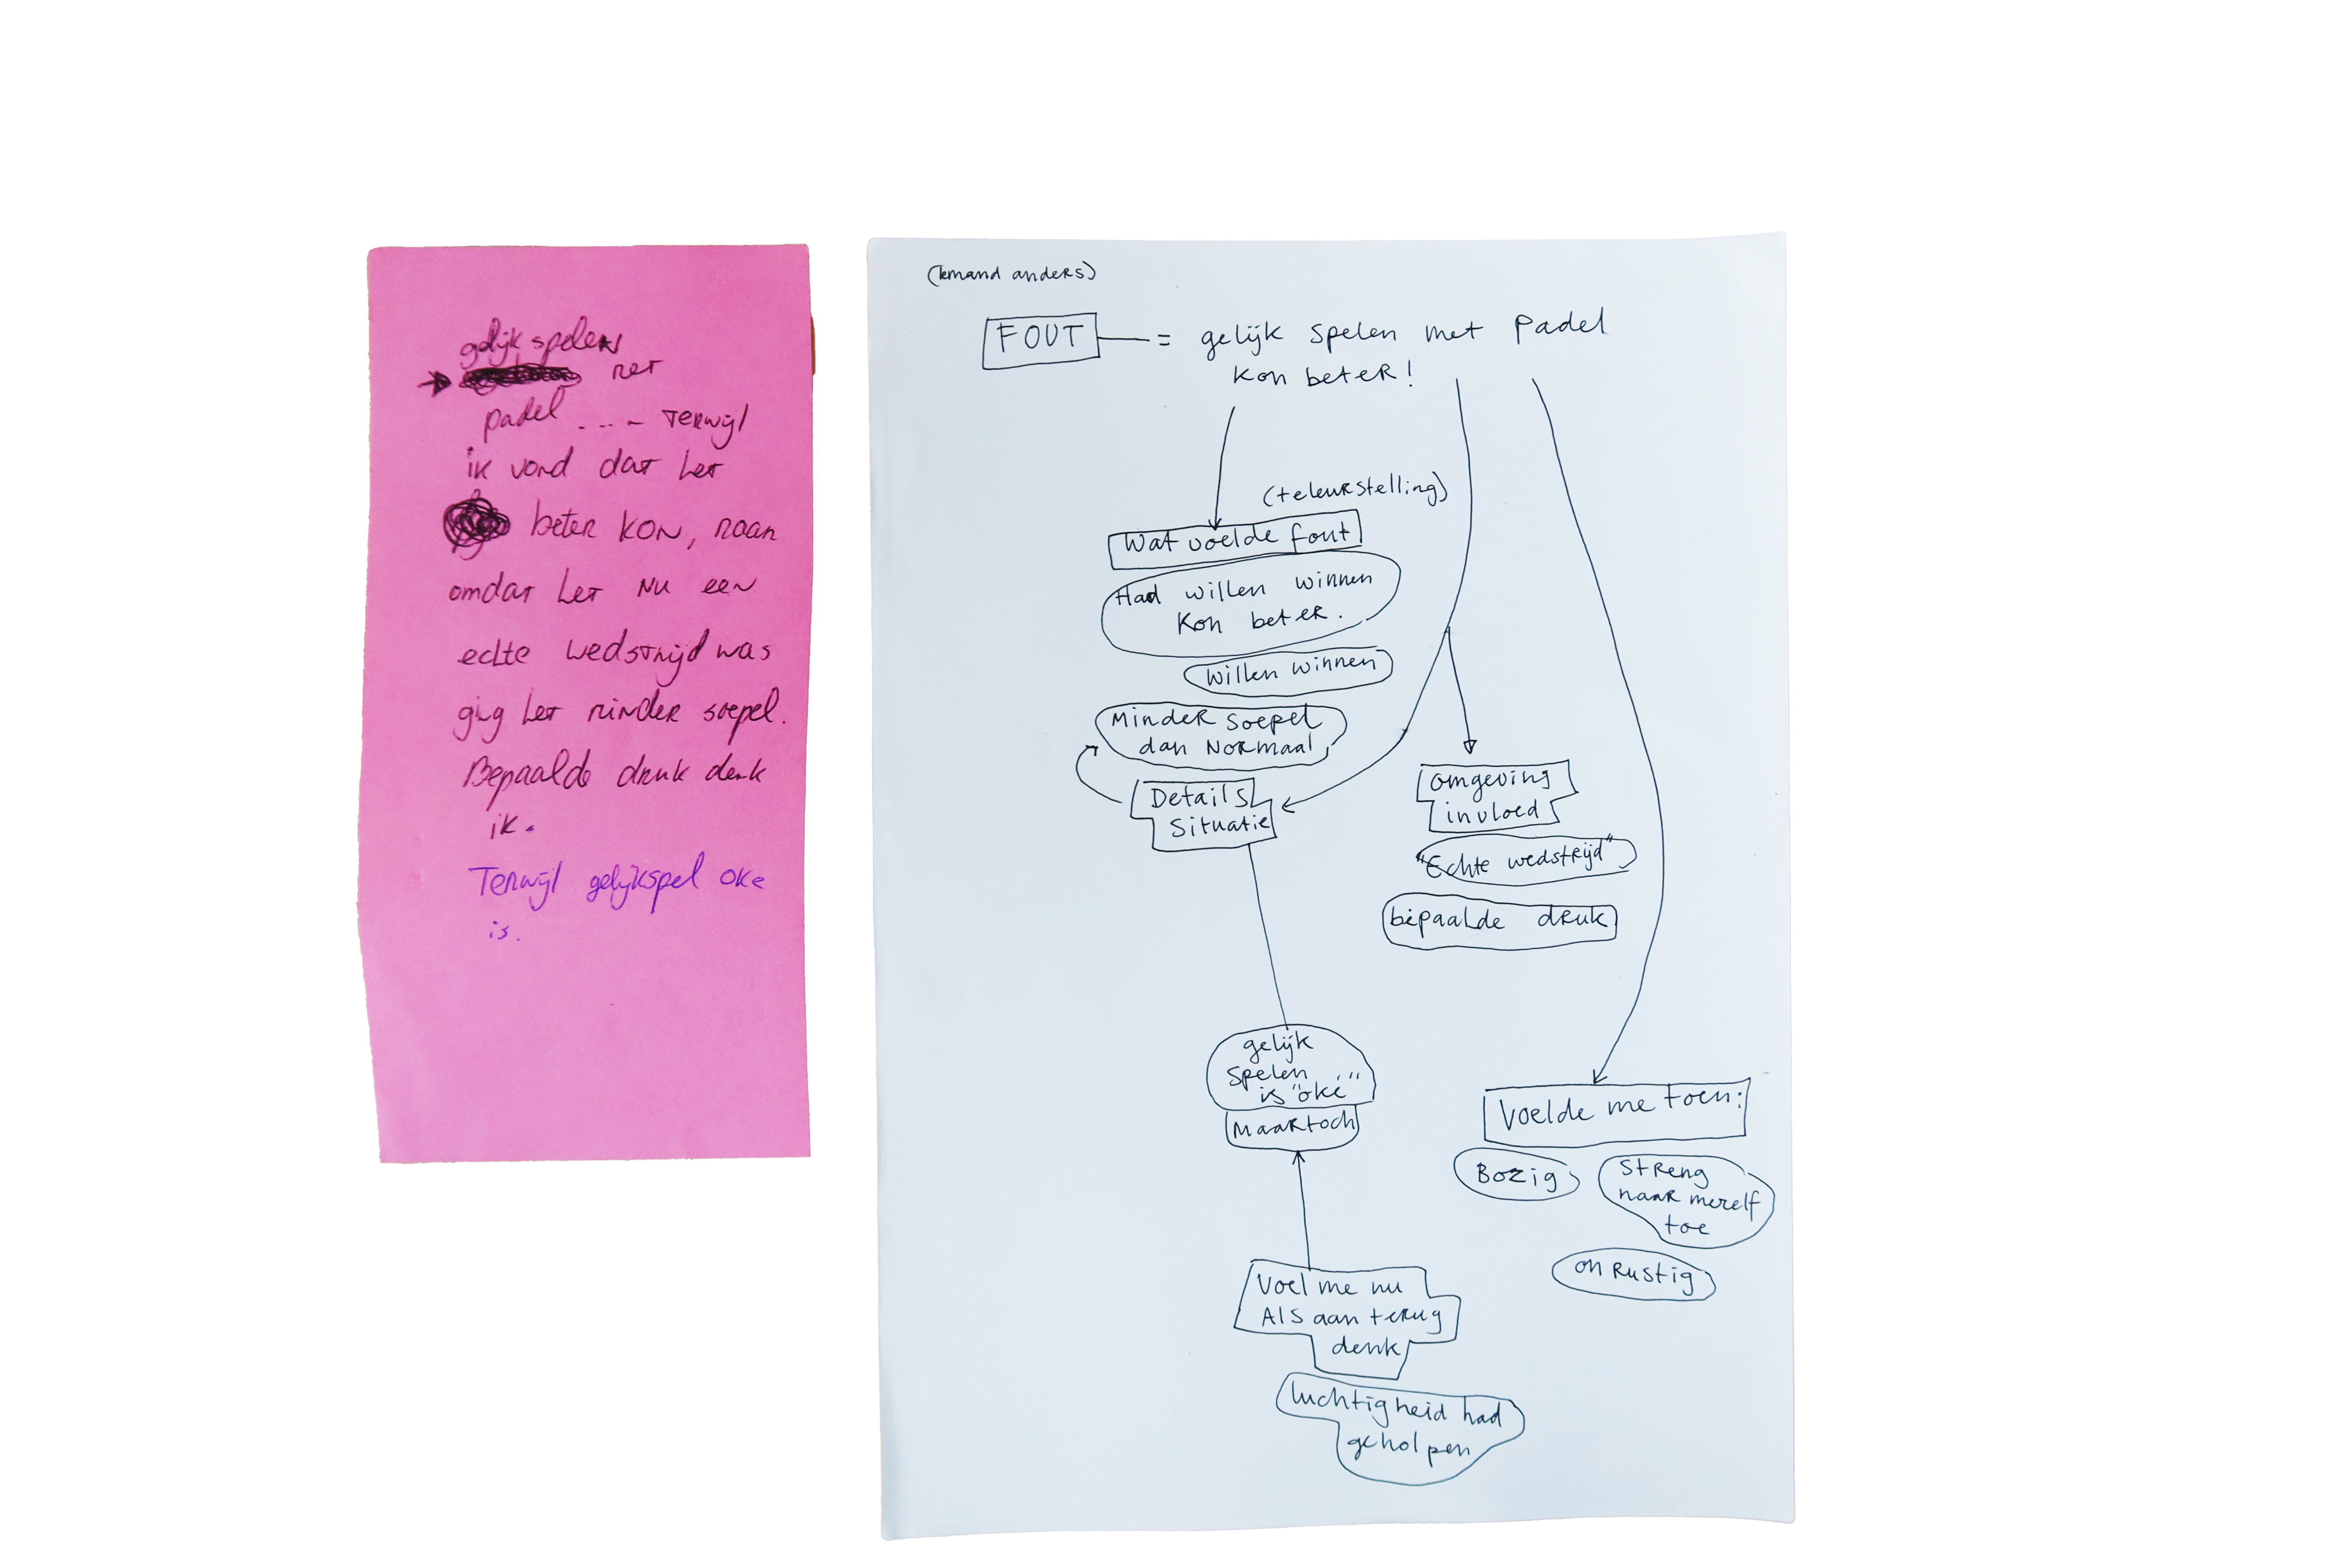 gelijkspelen
→ met
padel .... terwijl
ik vond dat het
beter kon, maar
omdat het nu een
echte wedstrijd was
ging het minder soepel.
Bepaalde druk denk
ik.
Terwijl gelijkspel oke
is.
(Iemand anders)
FOUT = gelijk spelen met padel
kon beter!
(teleurstelling)
Wat voelde fout
Had willen winnen
kon beter.
willen winnen
Minder soepel
dan normaal
Details
Situatie
omgeving
invloed
"Echte wedstrijd"
bepaalde druk
gelijk
spelen
is "oké"
Maar toch
Voelde me toen:
Bozig
Streng
naar mezelf
toe
onrustig
Voel me nu
Als aan terug
denk
luchtigheid had
geholpen